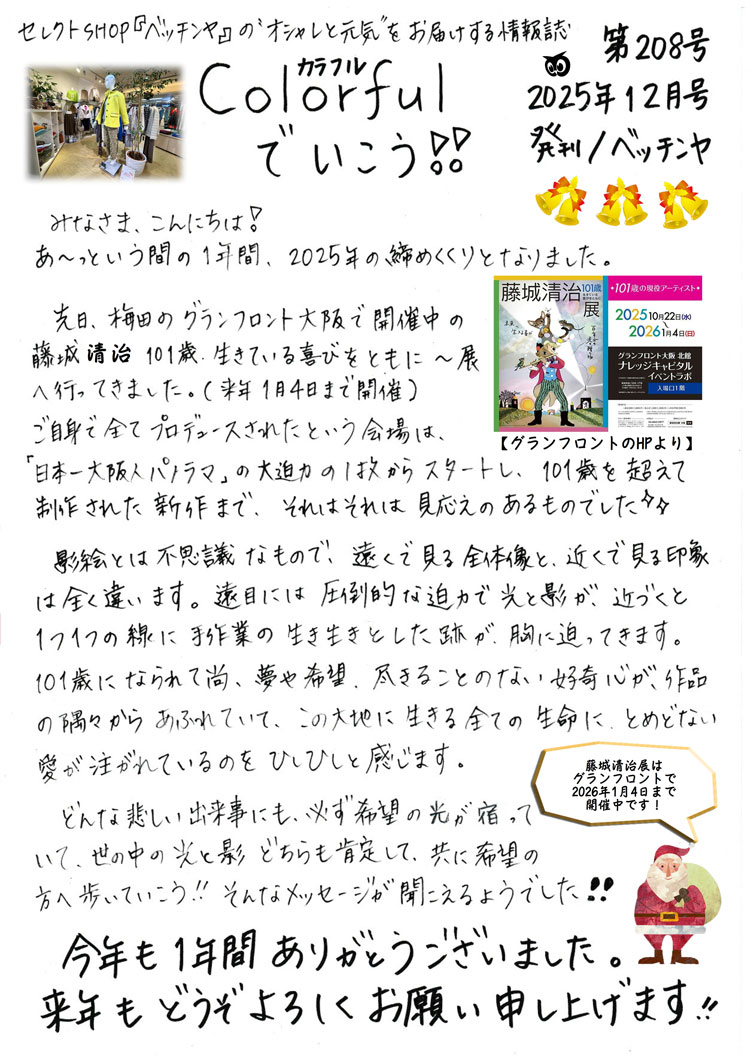 セレクトSHOP『ベッチンヤ』の"オシャレと元気"をお届けする情報誌
第208号
カラフル
Colorful
でいこう!!
2025年12月号
発刊/ベッチンヤ
みなさま、こんにちは!
あ〜っという間の1年間、2025年の締めくくりとなりました。
先日、梅田のグランフロント大阪で開催中の
藤城清治 101歳.生きている喜びをともに〜展
へ行ってきました。(来年1月4日まで開催)
ご自身で全てプロデュースされたという会場は、
「日本一大阪人パノラマ」の大迫力の1枚からスタートし、101歳を超えて
制作された新作まで、それはそれは見応えのあるものでした
藤城清治
101歳
展
•101歳の現役アーティスト•
2025 10月22日(水)
2026 1月4日(日)
グランフロント大阪 北館
ナレッジキャピタル
イベントラボ
入場口1階
【グランフロントのHPより】
影絵とは不思議なもので、遠くで見る全体像と、近くで見る印象
は全く違います。遠目には圧倒的な迫力で光と影が、近づくと
1つ1つの線に手作業の生き生きとした跡が、胸に迫ってきます。
101歳になられて尚、夢や希望、尽きることのない好奇心が、作品
の隅々からあふれていて、この大地に生きる全ての生命に、とめどない
愛が注がれているのをひしひしと感じます。
藤城清治展は
グランフロントで
2026年1月4日まで
開催中です!
どんな悲しい出来事にも、必ず希望の光が宿って
いて、世の中の光と影どちらも肯定して、共に希望の
方へ歩いていこう!!そんなメッセージが聞こえるようでした!!
今年も1年間ありがとうございました。
来年もどうぞよろしくお願い申し上げます!!